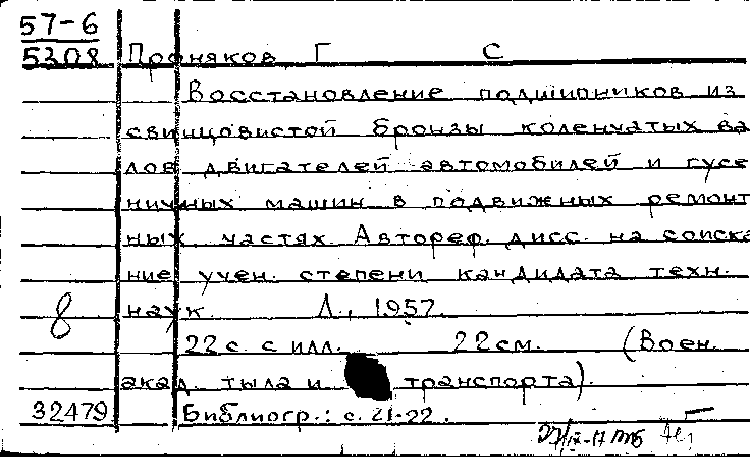 57-6
5308 Проняков Г С
Восстановление подшипников из
свинцовистой бронзы коленчатых ва
лов двигателей автомобилей и гусе
ничных машин в подвижных ремонт
ных частях. Автореф. дисс. на соиска
ние учен. степени кандидата техн.
8 наук. Л., 1957.
22 с. с илл. 22 см. (Воен.
акад. тыла и транспорта).
32479 Библиогр.: с. 21-22.